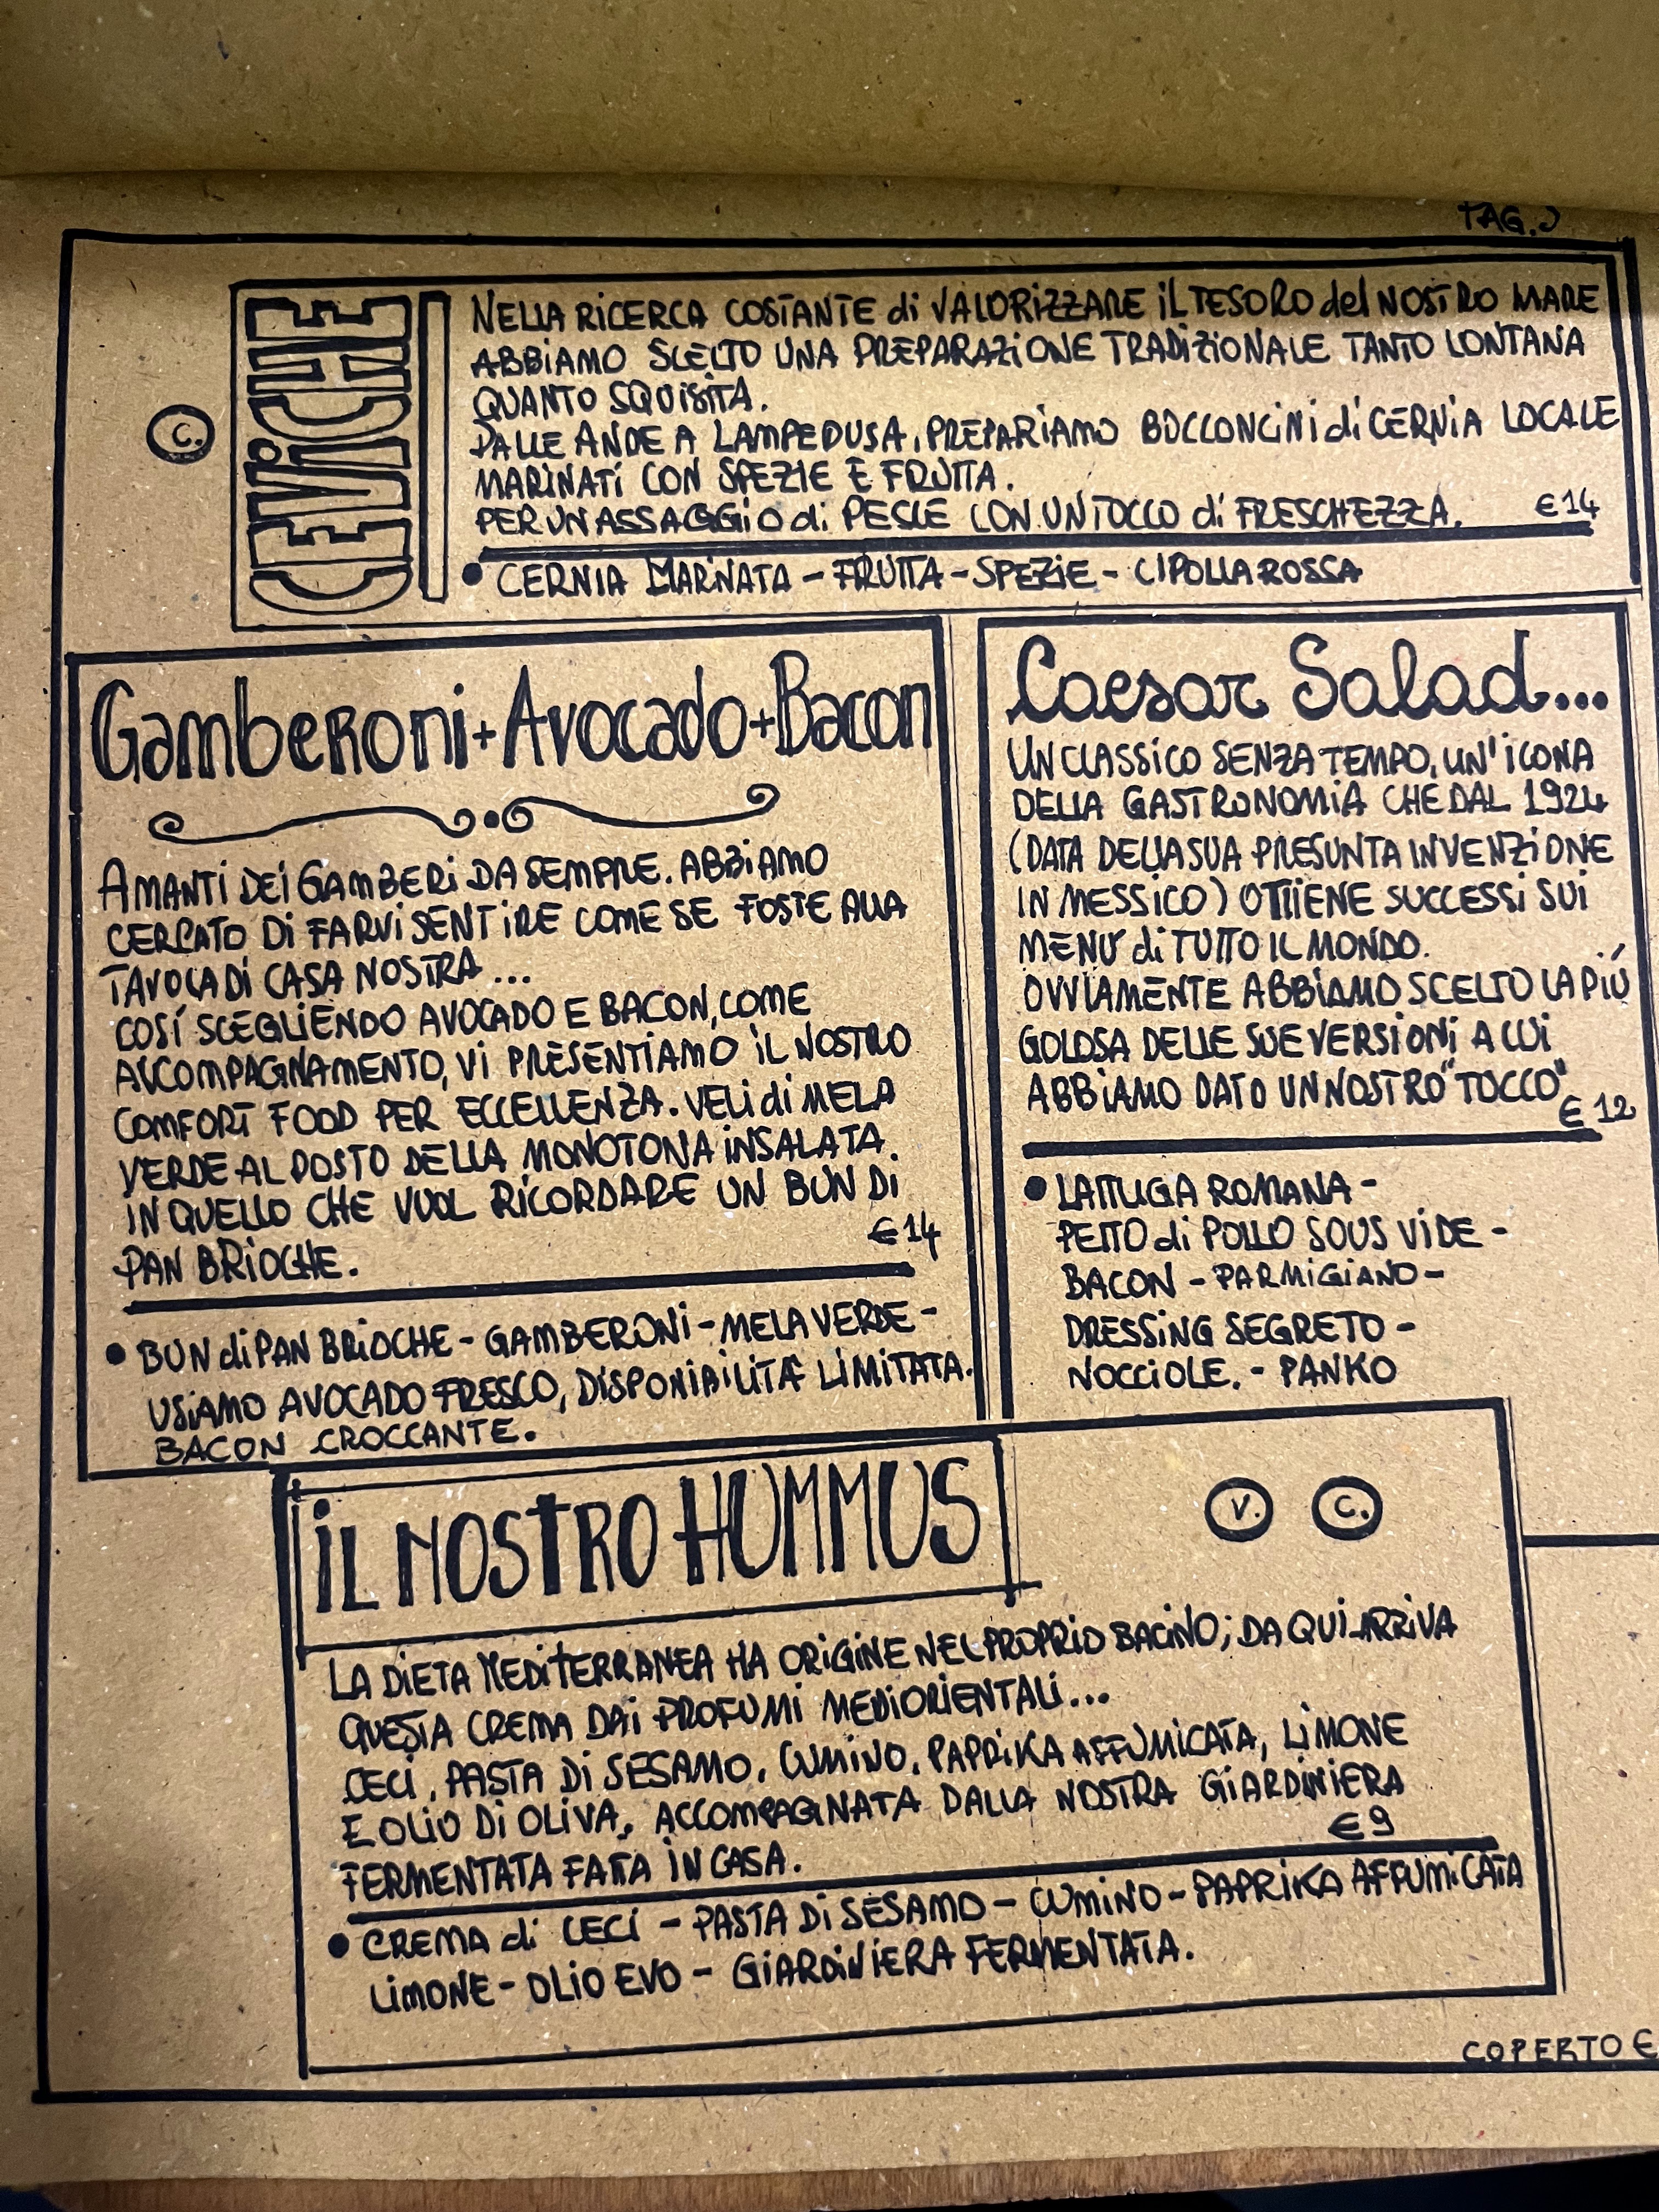 C.
CEViCHE
NELLA RICERCA COSTANTE di VALORIZZARE iL TESORO del NOSTRO MARE
ABBIAMO SCELTO UNA PREPARAZIONE TRADIZIONALE TANTO LONTANA
QUANTO SQUISITA.
DALLE ANDE A LAMPEDUSA, PREPARIAMO BOCCONCINI di CERNIA LOCALE
MARINATI CON SPEZIE E FRUTTA.
PER UN ASSAGGIO di PESCE CON UN TOCCO di FRESCHEZZA. €14
• CERNIA MARINATA - FRUTTA - SPEZIE - CIPOLLA ROSSA
Gamberoni+Avocado+Bacon
AMANTI DEI GAMBERI DA SEMPRE. ABBIAMO
CERCATO DI FARVI SENTIRE COME SE FOSTE ALLA
TAVOLA DI CASA NOSTRA...
COSÍ SCEGLIENDO AVOCADO E BACON, COME
ACCOMPAGNAMENTO, VI PRESENTIAMO IL NOSTRO
COMFORT FOOD PER ECCELLENZA. VELI di MELA
VERDE AL POSTO DELLA MONOTONA INSALATA.
IN QUELLO CHE VUOL RICORDARE UN BUN DI
PAN BRIOCHE. €14
• BUN di PAN BRIOCHE - GAMBERONI - MELA VERDE -
USIAMO AVOCADO FRESCO, DISPONIBILITÀ LIMITATA.
BACON CROCCANTE.
Caesar Salad...
UN CLASSICO SENZA TEMPO, UN'ICONA
DELLA GASTRONOMIA CHE DAL 1924
(DATA DELLA SUA PRESUNTA INVENZIONE
IN MESSICO) OTTIENE SUCCESSI SUI
MENÚ di TUTTO IL MONDO.
OVVIAMENTE ABBIAMO SCELTO LA PIÚ
GOLOSA DELLE SUE VERSIONI A CUI
ABBIAMO DATO UN NOSTRO "TOCCO"
€ 12
• LATTUGA ROMANA -
PETTO di POLLO SOUS VIDE -
BACON - PARMIGIANO -
DRESSING SEGRETO -
NOCCIOLE. - PANKO
IL NOSTRO HUMMUS
V. C.
LA DIETA MEDITERRANEA HA ORIGINE NEL PROPRIO BACINO; DA QUI ARRIVA
QUESTA CREMA DAI PROFUMI MEDIORIENTALI...
CECI, PASTA DI SESAMO, CUMINO, PAPRIKA AFFUMICATA, LIMONE
E OLIO DI OLIVA, ACCOMPAGNATA DALLA NOSTRA GIARDINIERA
FERMENTATA FATTA IN CASA. €9
• CREMA di CECI - PASTA DI SESAMO - CUMINO - PAPRIKA AFFUMICATA
LIMONE - OLIO EVO - GIARDINIERA FERMENTATA.
COPERTO €